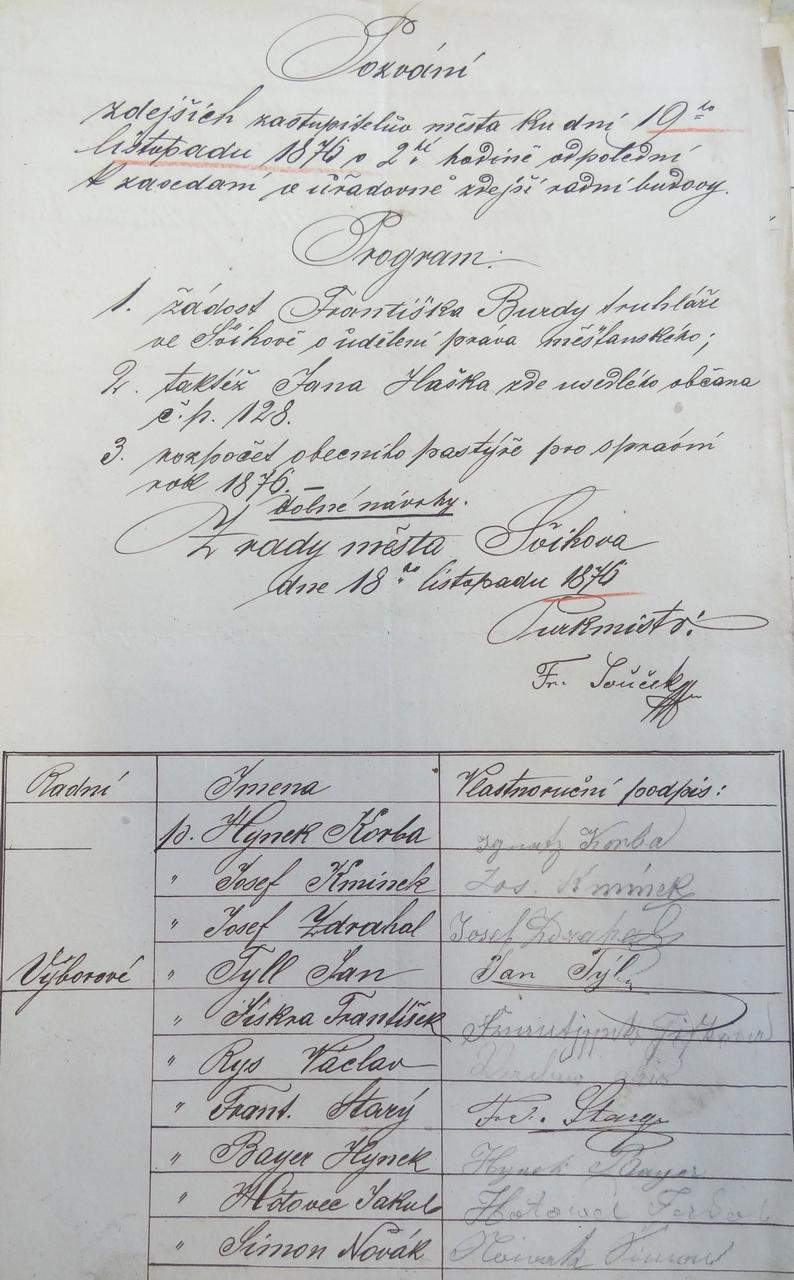 Pozvání
zdejších zastupitelův města ku dni 19ho
listopadu 1876 o 2hé hodině odpolední
k zasedání v úřadovně zdejší radní budovy.
Program:
1. žádost Františka Burdy truhláře
ve Švihově o udělení práva měšťanského;
2. taktéž Jana Haška zde usedlého občana
č. p. 128.
3. rozpočet obecního pastýře pro správní
rok 1876.
Volné návrhy.
Z rady města Švihova
dne 18ho listopadu 1876
Purkmistr:
Fr. Souček
Radní Jmena Vlastnoruční podpis:
p. Hynek Korba Ignatz Korba
" Josef Kmínek Jos. Kmínek
" Josef Zdrahal Josef Zdrahal
Výborové " Tyll Jan Jan Týl
" Jiskra František
" Rys Václav
" Frant. Starý Fr. Starý
" Bayer Hynek Hynek Bayer
" Hotovec Jakub
" Šimon Novák Nowak Šimon